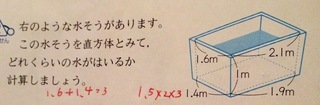 右のような水そうがあります。
この水そうを直方体とみて、
どれくらいの水がはいるか
計算しましょう。
1.6+1.4=3
1.5×2×3
1.6m
2.1m
1m
1.4m
1.9m